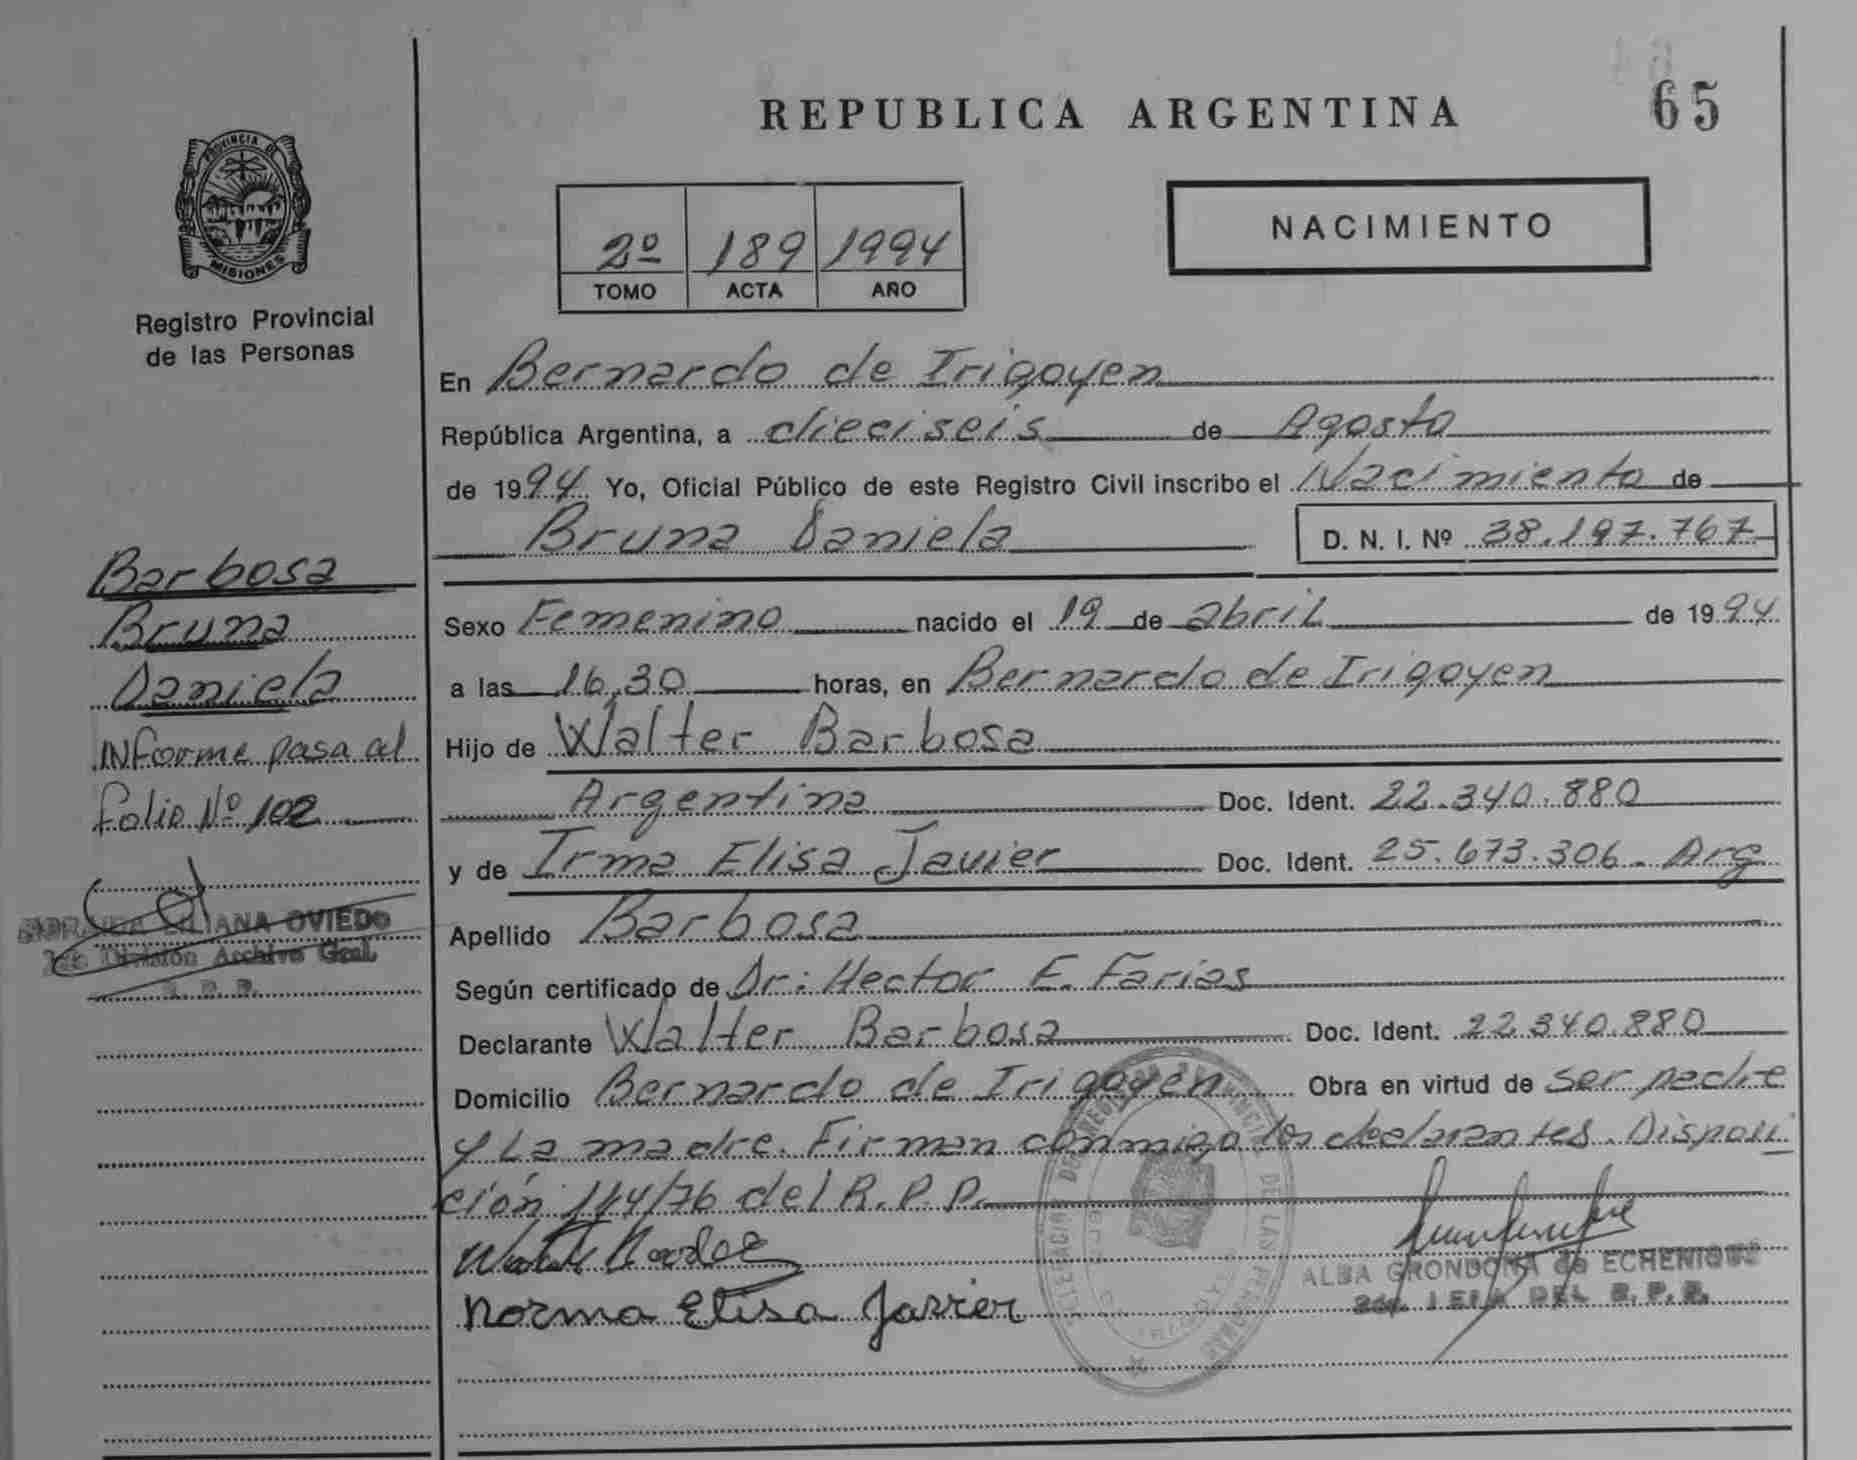 65
REPUBLICA ARGENTINA
PROVINCIA DE
MISIONES
Registro Provincial
de las Personas
2º 189 1994
TOMO ACTA AÑO
NACIMIENTO
En Bernardo de Irigoyen
República Argentina, a dieciseis de Agosto
de 1994 Yo, Oficial Público de este Registro Civil inscribo el Nacimiento de
Bruna Daniela D. N. I. Nº 38.197.767
Barbosa
Bruna
Daniela
INforme pasa al
folio Nº 102
LILIANA OVIEDO
División Archivo Gral.
Sexo Femenino nacido el 19 de abril de 1994
a las 16,30 horas, en Bernardo de Irigoyen
Hijo de Walter Barbosa
Argentina Doc. Ident. 22.340.880
y de Irma Elisa Javier Doc. Ident. 25.673.306. Arg
Apellido Barbosa
Según certificado de Dr: Hector E. Farias
Declarante Walter Barbosa Doc. Ident. 22.340.880
Domicilio Bernardo de Irigoyen Obra en virtud de ser padre
y La madre. Firman conmigo los declarantes. Disposi
ción 144/76 del R.P.P.
Norma Elisa Javier
ALBA GRONDONA de ECHENIQUE
JEFA DEL R.P.P.